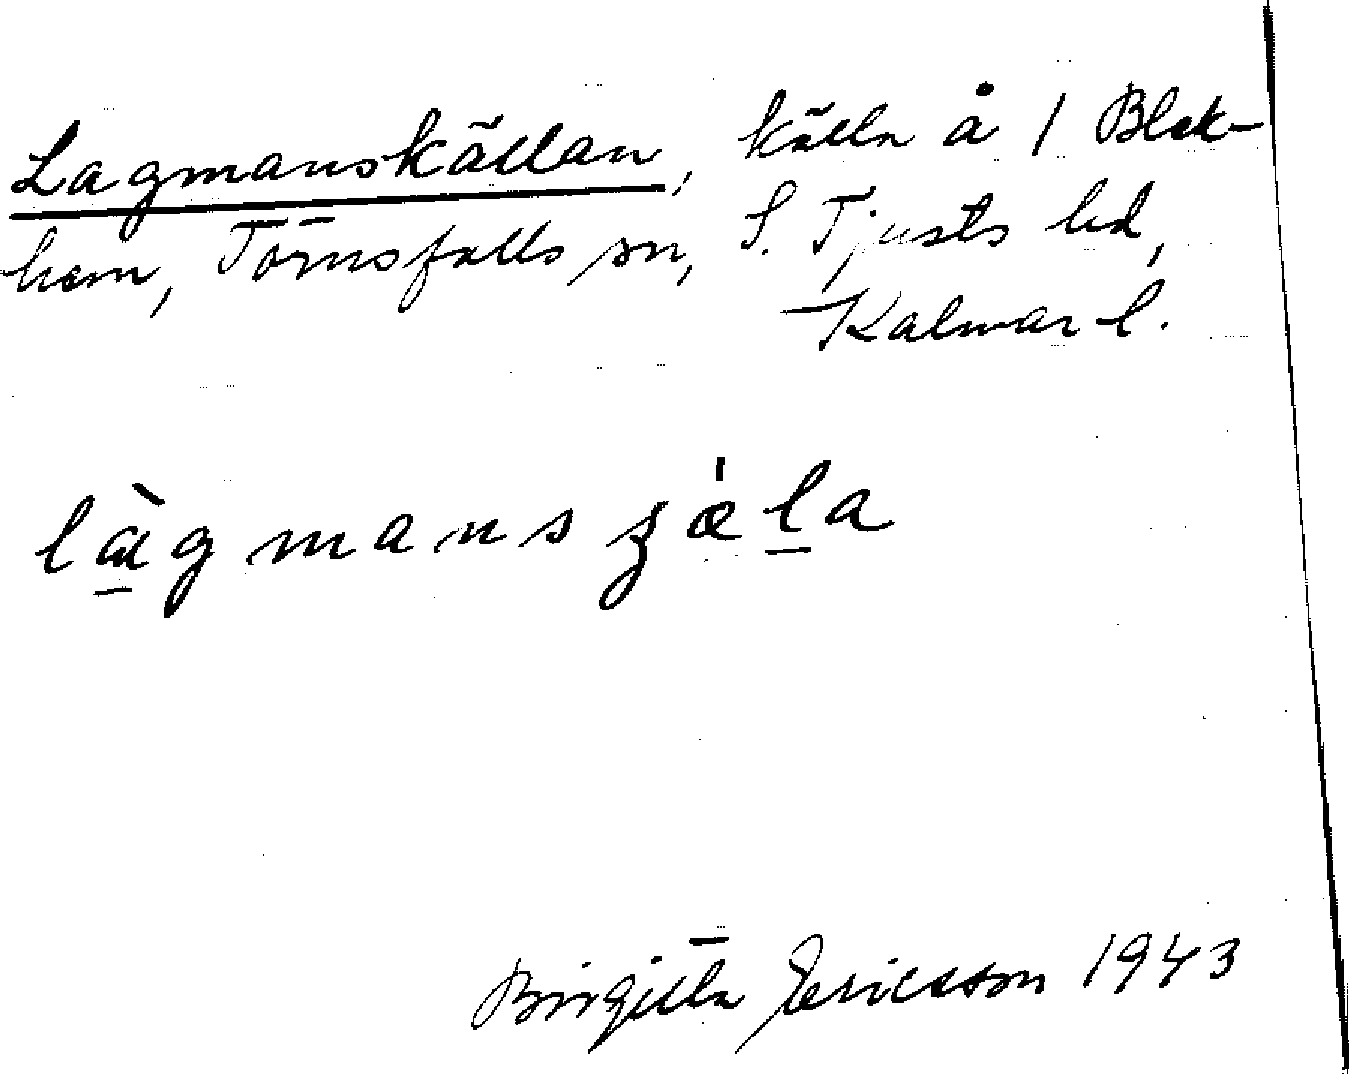 Lagmanskällan, källa å 1 Blek-
hem, Törnsfalls sn, S. Tjusts hd,
Kalmar l.
Birgitta Ericsson 1943